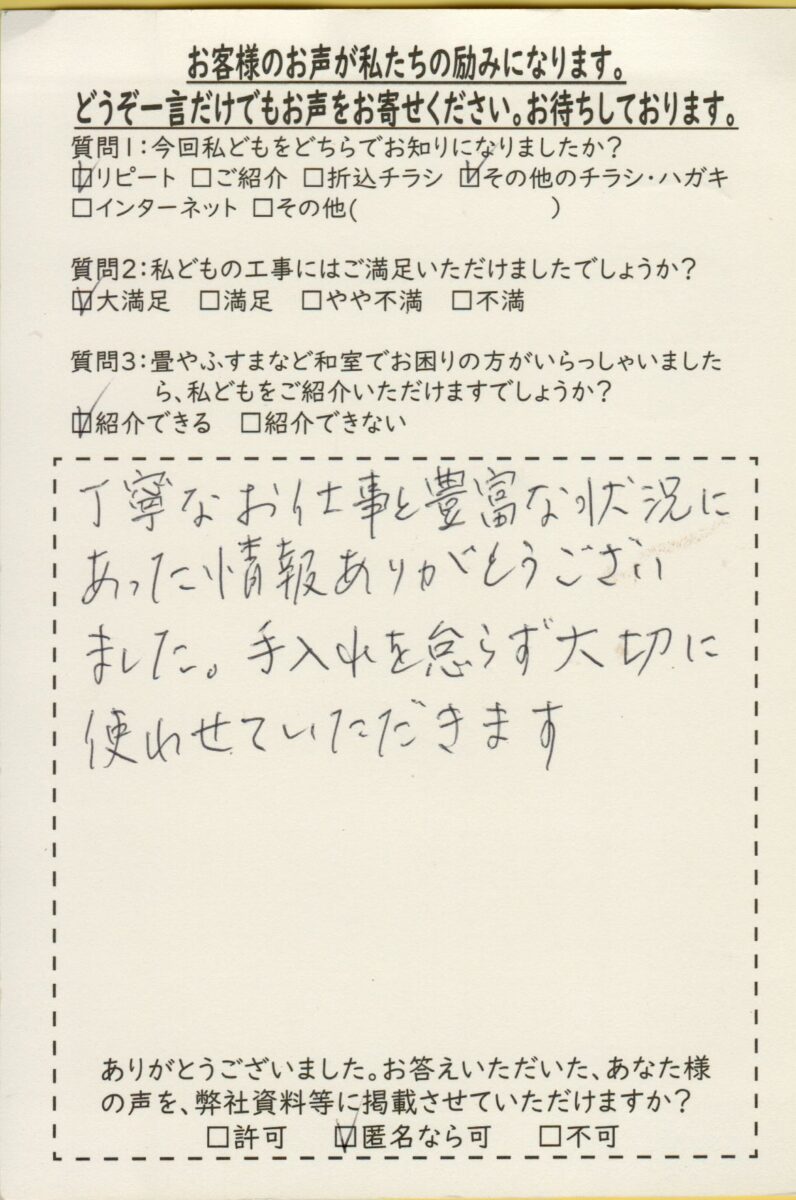 お客様のお声が私たちの励みになります。
どうぞ一言だけでもお声をお寄せください。お待ちしております。
質問1:今回私どもをどちらでお知りになりましたか?
☑リピート □ご紹介 □折込チラシ ☑その他のチラシ・ハガキ
□インターネット □その他( )
質問2:私どもの工事にはご満足いただけましたでしょうか?
☑大満足 □満足 □やや不満 □不満
質問3:畳やふすまなど和室でお困りの方がいらっしゃいました
ら、私どもをご紹介いただけますでしょうか?
☑紹介できる □紹介できない
丁寧なお仕事と豊富な状況に
あった情報ありがとうござい
ました。手入れを怠らず大切に
使わせていただきます
ありがとうございました。お答えいただいた、あなた様
の声を、弊社資料等に掲載させていただけますか?
□許可 ☑匿名なら可 □不可